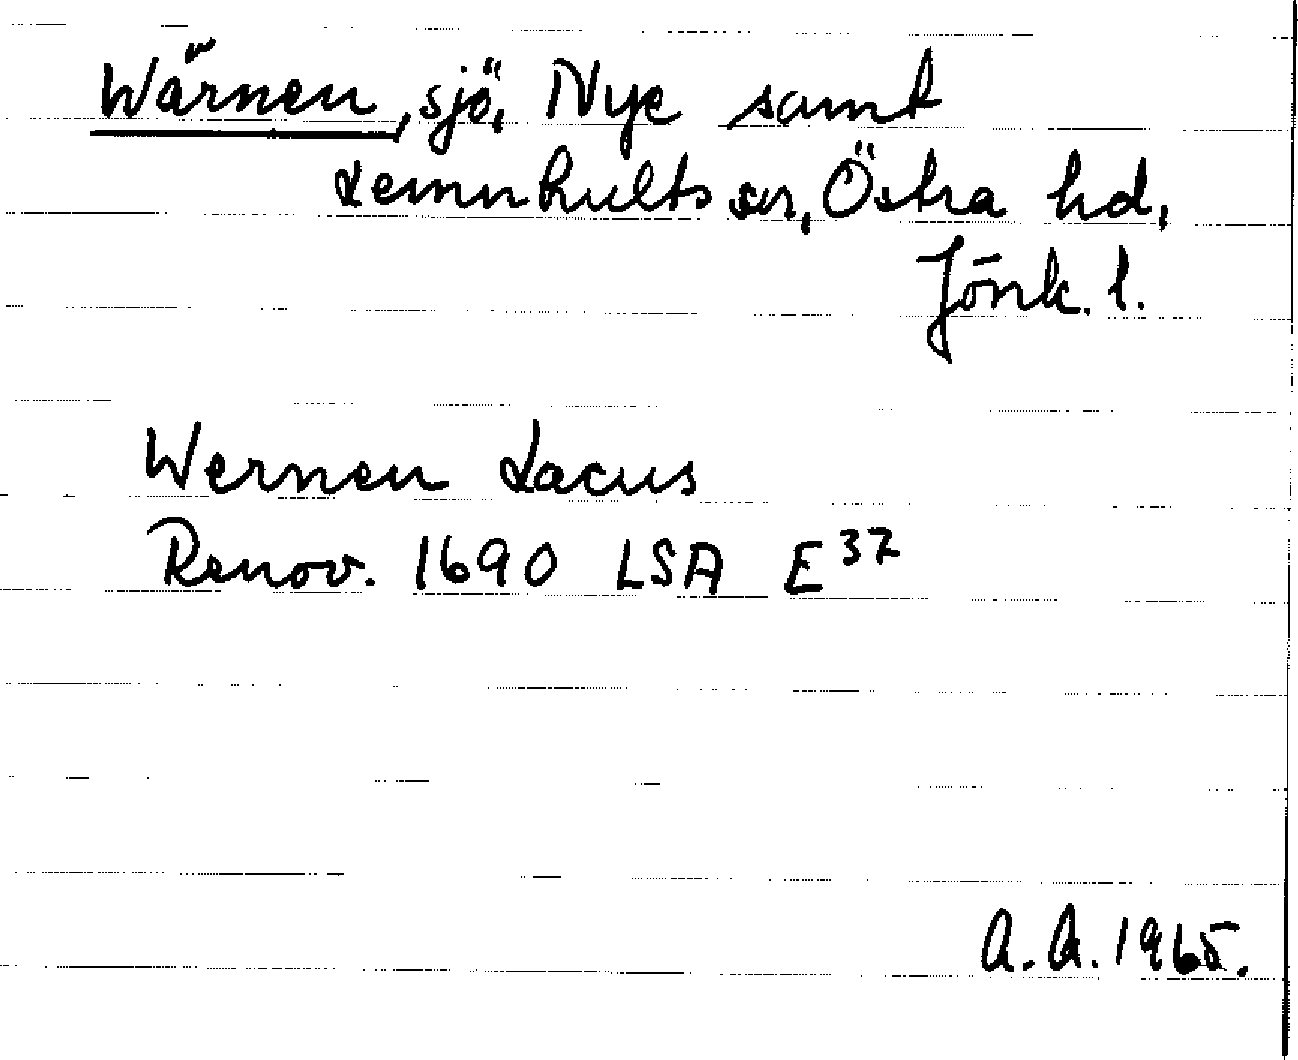 Wärnen, sjö, Nye samt
Lemnhults snr, Östra hd,
Jönk. l.
Wernen Lacus
Renov. 1690 LSA E37
A.A. 1965.